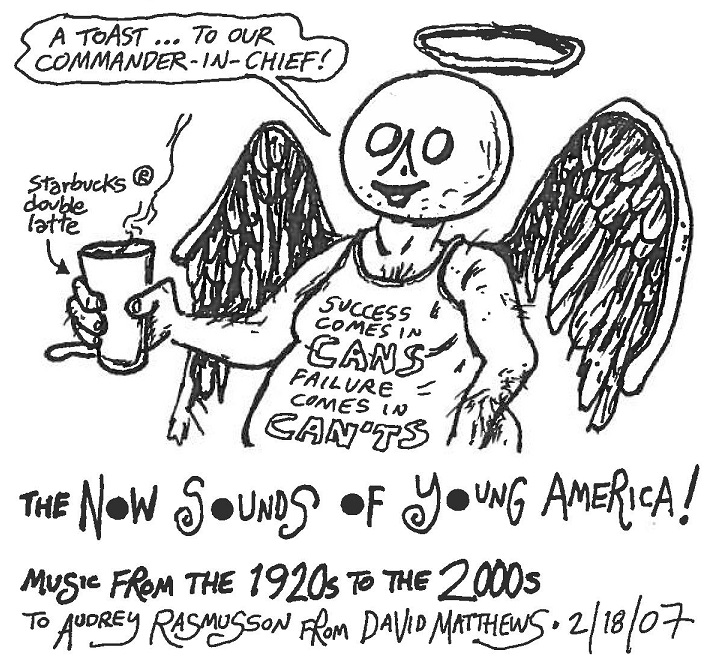 A TOAST ... TO OUR
COMMANDER-IN-CHIEF!
Starbucks ®
double
latte
SUCCESS
COMES IN
CANS
FAILURE
COMES IN
CAN'TS
THE NOW SOUNDS OF YOUNG AMERICA!
MUSIC FROM THE 1920s TO THE 2000s
TO AUDREY RASMUSSON FROM DAVID MATTHEWS • 2/18/07